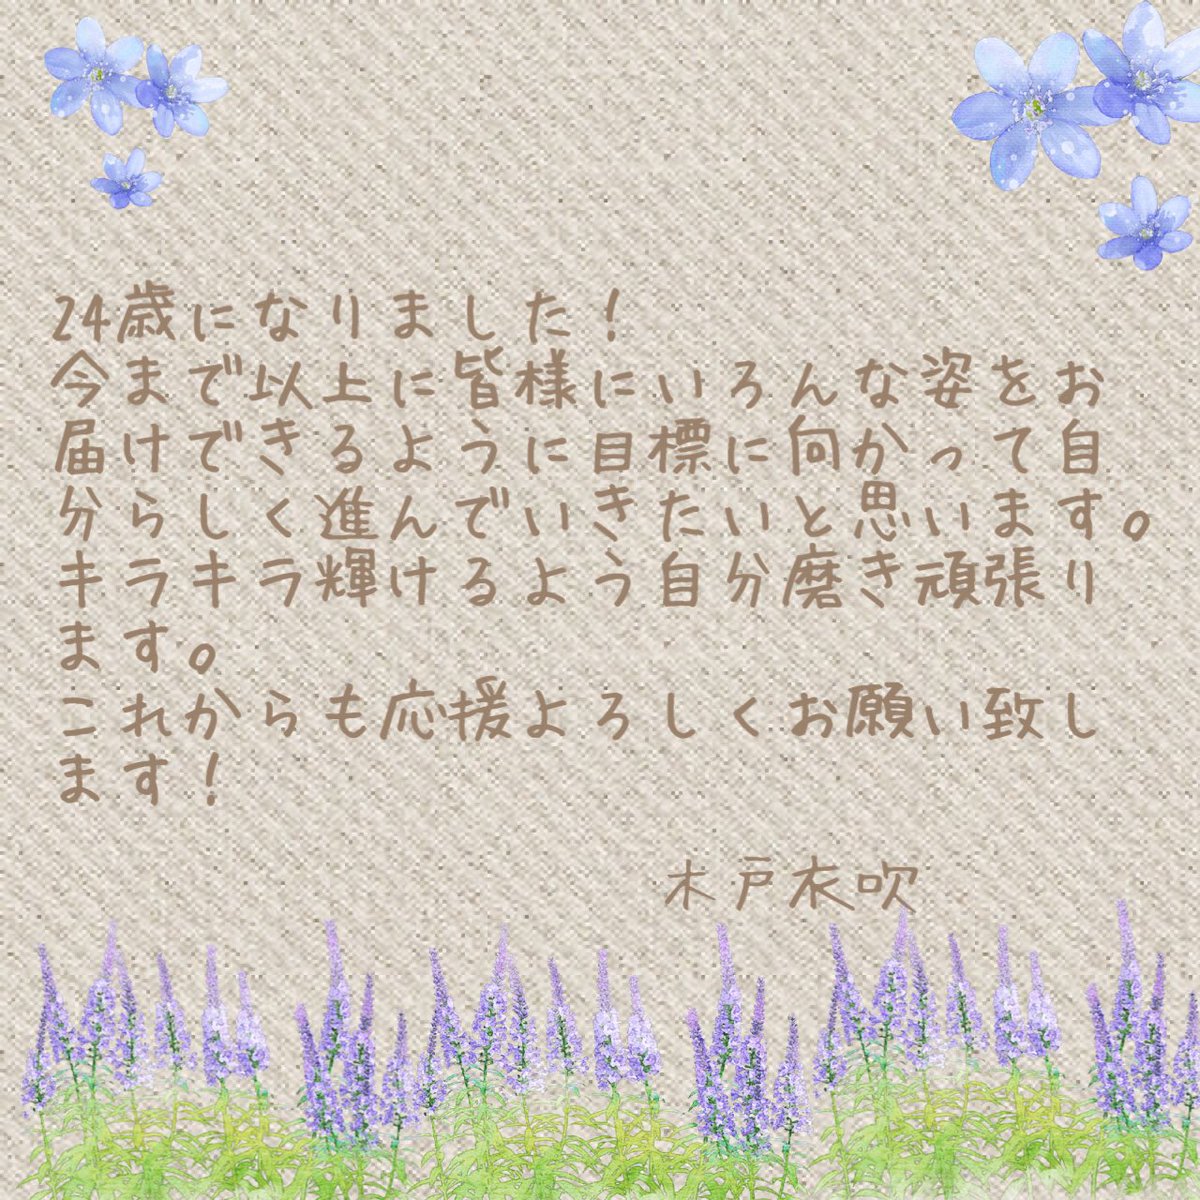 24歳になりました！
今まで以上に皆様にいろんな姿をお
届けできるように目標に向かって自
分らしく進んでいきたいと思います。
キラキラ輝けるよう自分磨き頑張り
ます。
これからも応援よろしくお願い致し
ます！
木戸衣吹